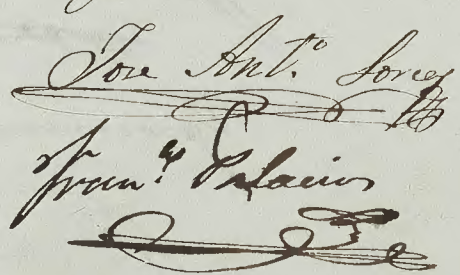 Jose Ant.º Lopez
Fran.co Palacios